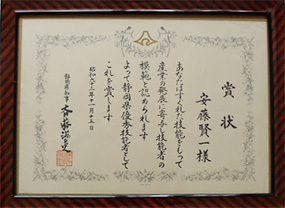 賞状
安藤賢一様
あなたはすぐれた技能をもって
産業の発展に寄与し技能者の
模範と認められます
よって静岡県優秀技能者として
これを賞します
昭和六十三年十一月十五日
静岡県知事 斉藤滋与史